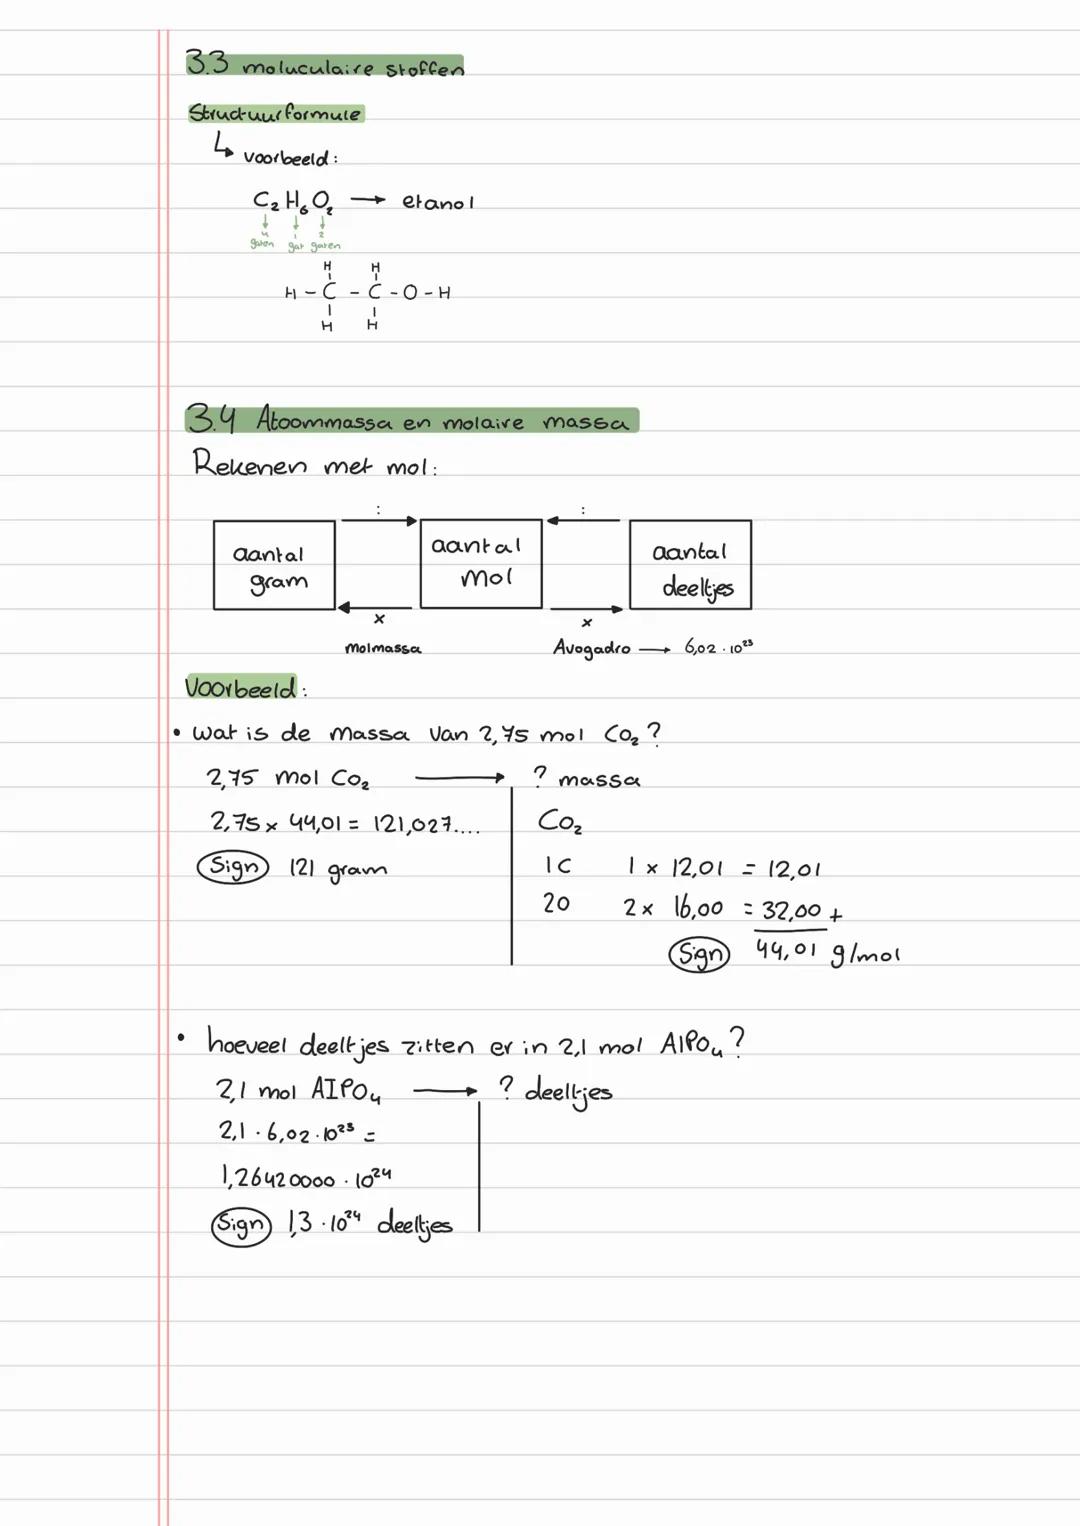 3.3 moluculaire stoffen
Structuurformule
↳ voorbeeld:
C₂H₆O₂ → etanol
↓ ↓ ↓
4 1 2
gaten gat gaten
H H
H - C - C - O - H
H H
3.4 Atoommassa en molaire massa
Rekenen met mol:
: :
aantal gram
aantal mol
aantal deeltjes
x x
molmassa
Avogadro → 6,02 · 10²³
Voorbeeld:
• wat is de massa van 2,75 mol CO₂?
2,75 mol CO₂ → ? massa
2,75 x 44,01 = 121,027....
CO₂
Sign 121 gram
1C 1 x 12,01 = 12,01
2O 2 x 16,00 = 32,00 +
Sign 44,01 g/mol
• hoeveel deeltjes zitten er in 2,1 mol AlPO₄?
2,1 mol AlPO₄ → ? deeltjes
2,1 · 6,02 · 10²³ =
1,26420000 · 10²⁴
Sign 1,3 · 10²⁴ deeltjes